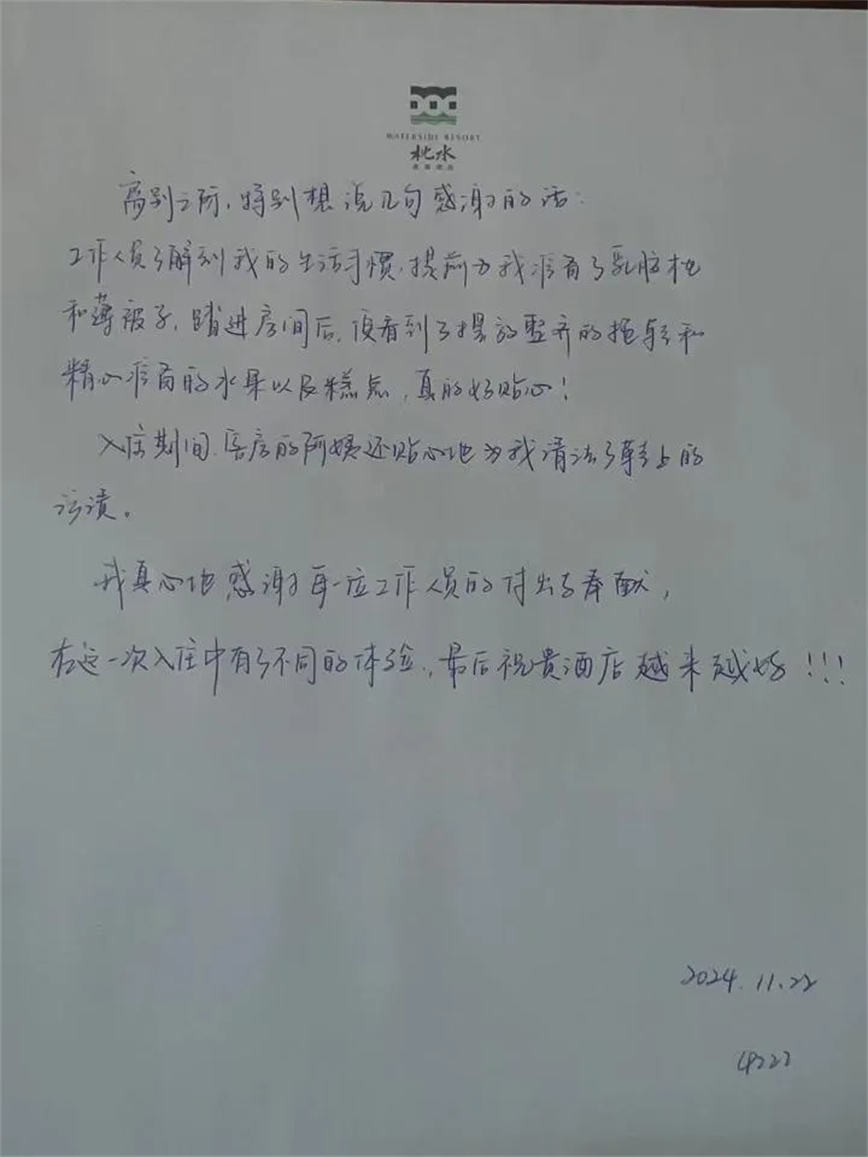 WATERSIDE RESORT
枇水
离别之际，特别想说几句感谢的话：
工作人员了解到我的生活习惯，提前为我准备了乳胶枕
和薄被子，踏进房间后，便看到了摆放整齐的拖鞋和
精心准备的水果以及糕点，真的好贴心！
入住期间，客房的阿姨还贴心地为我清洁了鞋上的
污渍。
我真心地感谢每一位工作人员的付出与奉献，
在这一次入住中有了不同的体验，最后祝贵酒店越来越好！！！
2024.11.22
4222